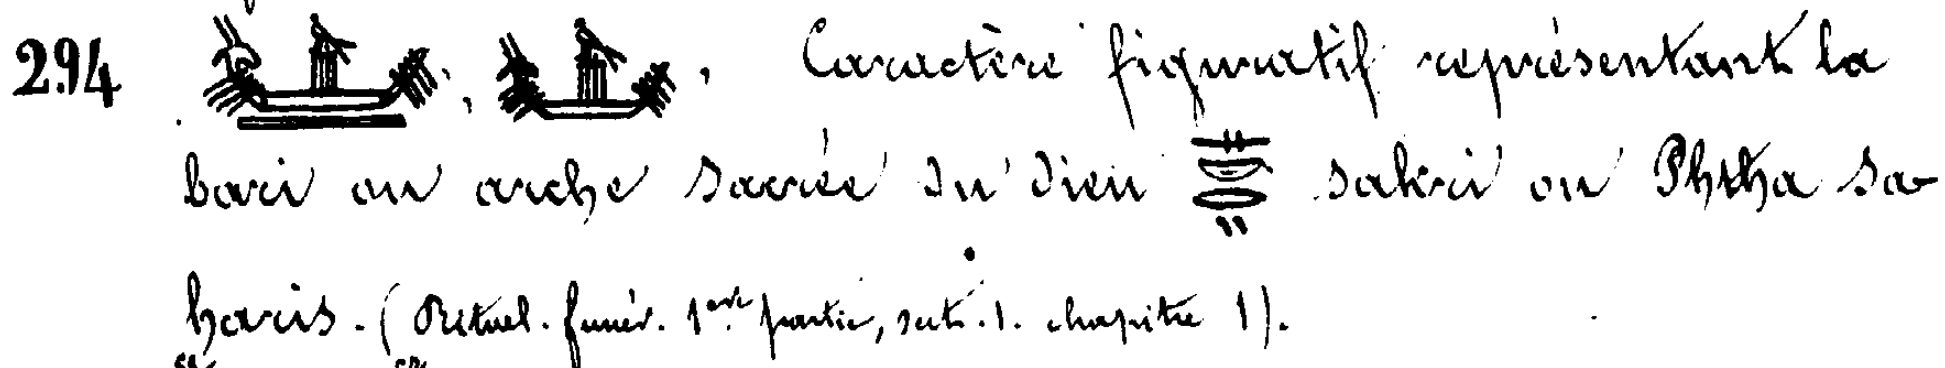 294 , . Caractère figuratif représentant la
bari ou arche sacrée du dieu sakri ou Phtha sa
haris. (Rituel. funér. 1ere partie, sect. 1. chapitre 1).